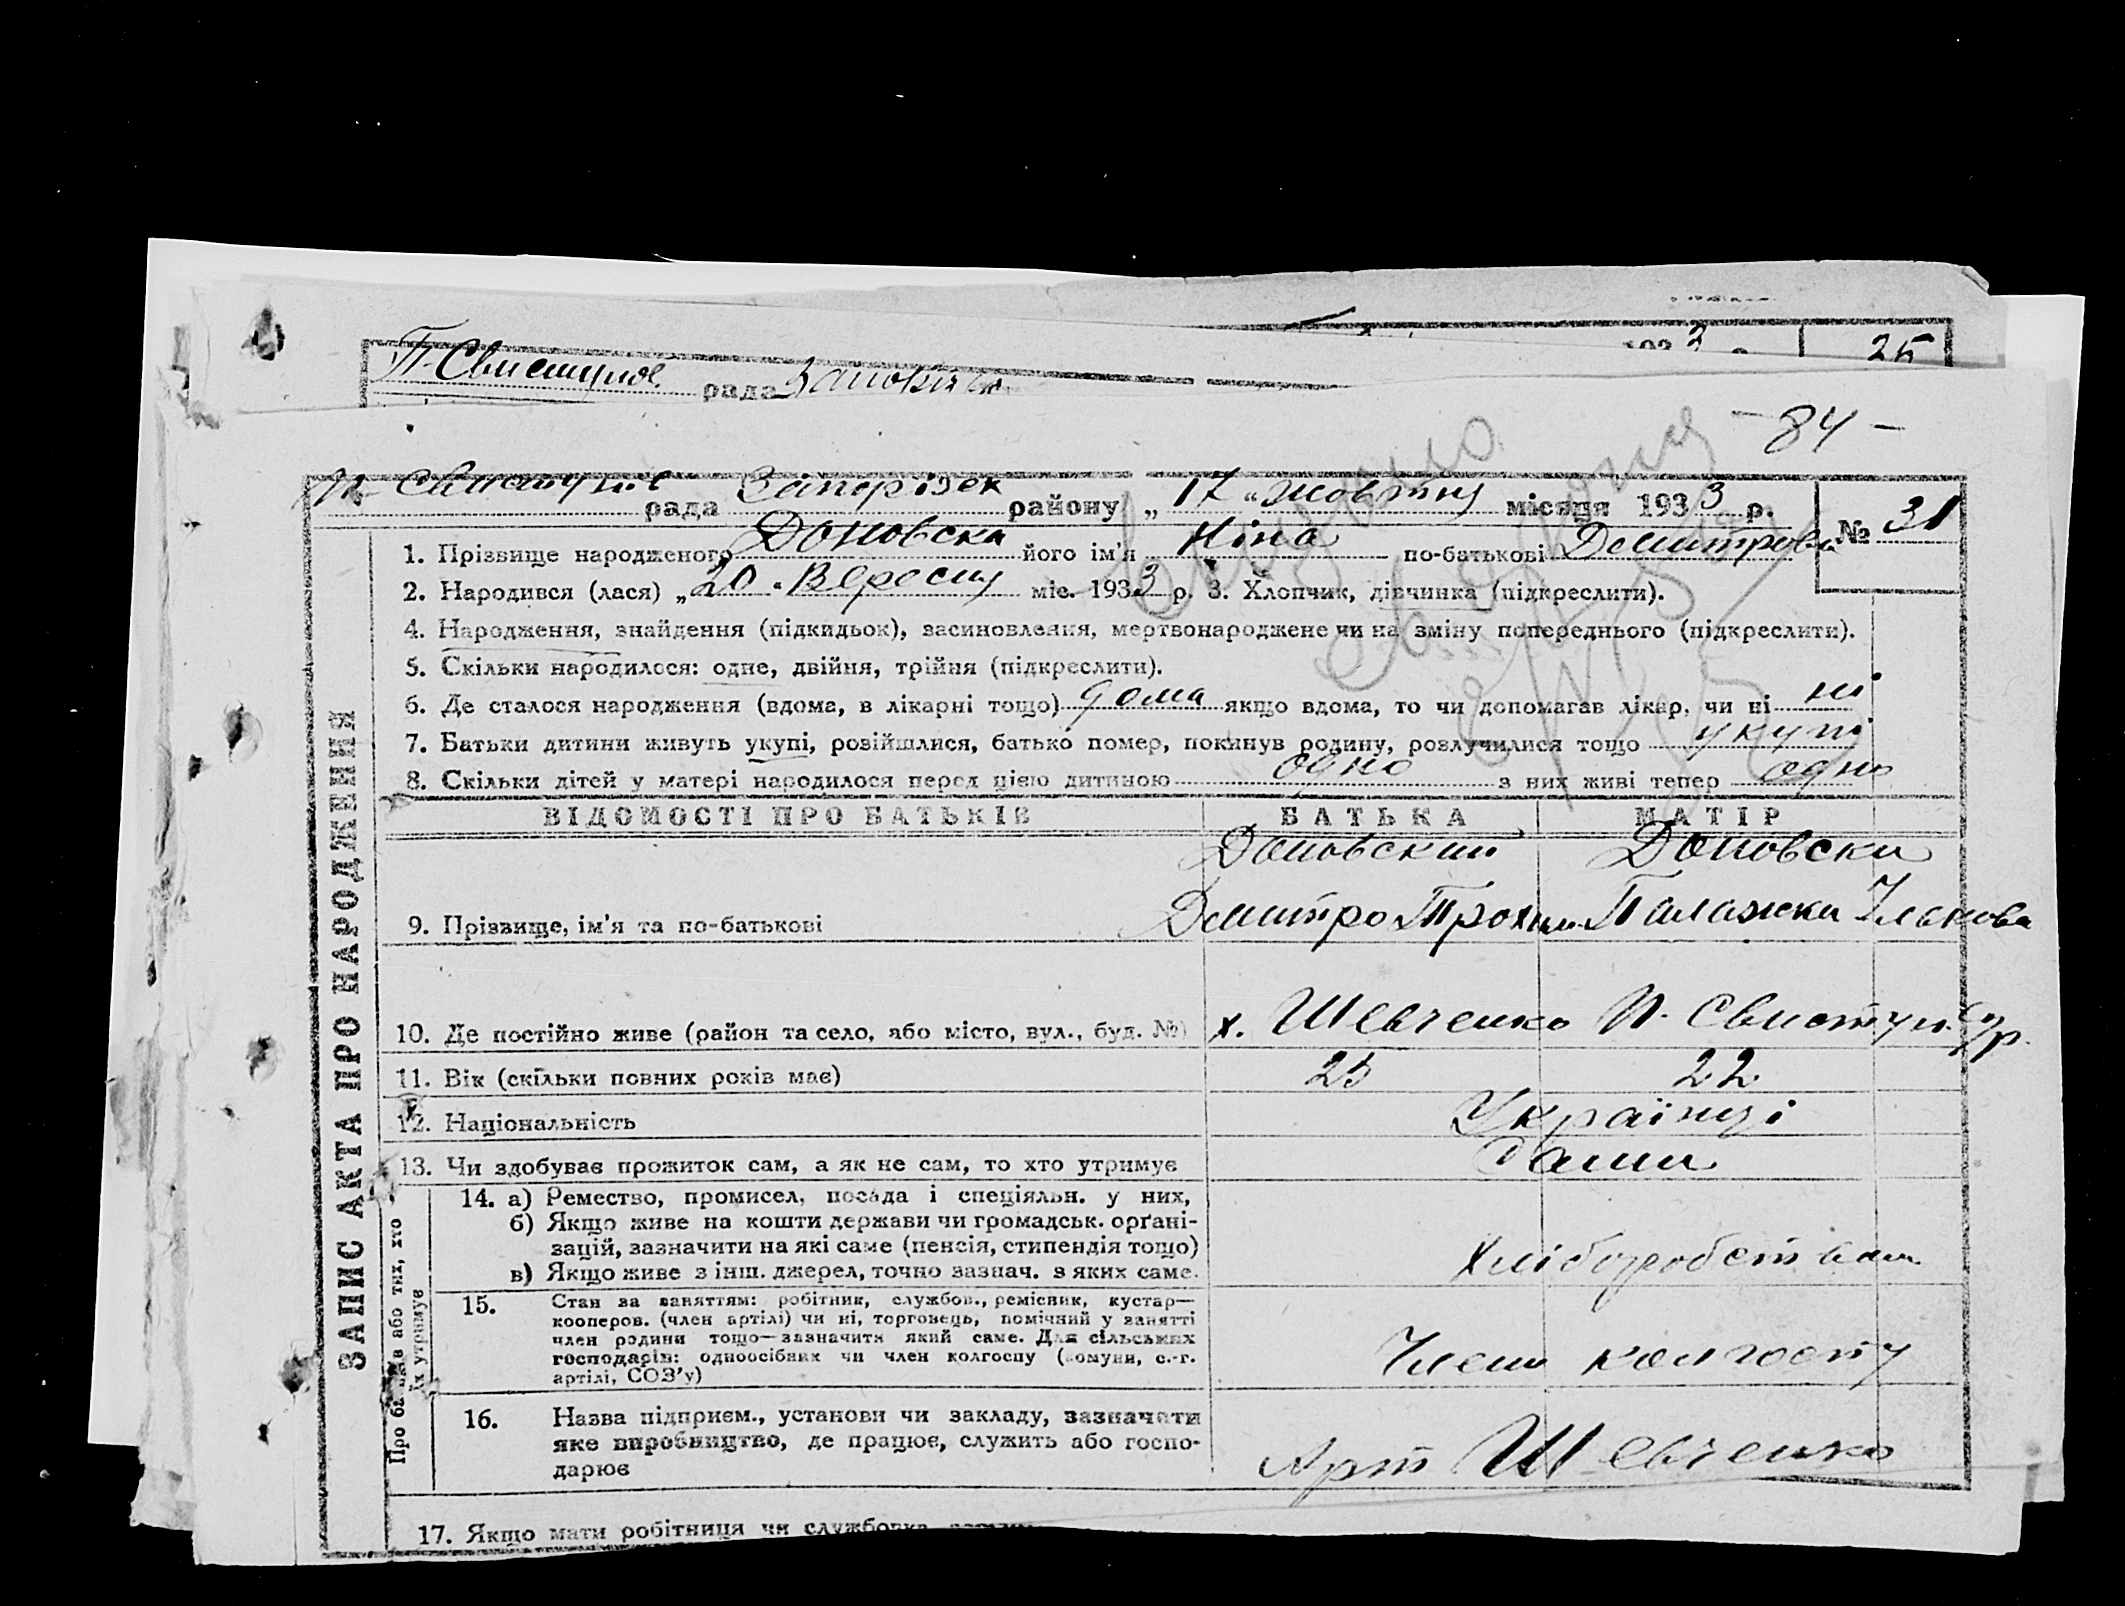 П-Свистунов. рада
193 3 р. 25
- 84 -
П-Свистунів рада Запорізьк району „17“ жовтня місяця 1933 р. № 31
1. Прізвище народженого Доновска його ім'я Ніна по-батькові Дмитрова
2. Народився (лася) „20“ Вересня міс. 1933 р. 3. Хлопчик, дівчинка (підкреслити).
4. Народження, знайдення (підкидьок), засиновлення, мертвонароджене чи на зміну попереднього (підкреслити).
5. Скільки народилося: одне, двійня, трійня (підкреслити).
6. Де сталося народження (вдома, в лікарні тощо) дома якщо вдома, то чи допомагав лікар, чи ні ні
7. Батьки дитини живуть укупі, розійшлися, батько помер, покинув родину, розлучилися тощо укупі
8. Скільки дітей у матері народилося перед цією дитиною одно з них живі тепер одно
ЗАПИС АКТА ПРО НАРОДЖЕННЯ
ВІДОМОСТІ ПРО БАТЬКІВ БАТЬКА МАТІР
Доновский Доновска
9. Прізвище, ім'я та по-батькові Дмитро Трохим Палажка Ількова
10. Де постійно живе (район та село, або місто, вул., буд. №) х. Шевченко П-Свистун. с/р.
11. Вік (скільки повних років має) 25 22
12. Національність Українці
13. Чи здобуває прожиток сам, а як не сам, то хто утримує Сами
Про батьків або тих, хто
їх утримує
14. а) Ремество, промисел, посада і спеціяльн. у них,
б) Якщо живе на кошти держави чи громадськ. орґані-
зацій, зазначити на які саме (пенсія, стипендія тощо)
в) Якщо живе з інш. джерел, точно зазнач. з яких саме.
Хліборобством
15. Стан за заняттям: робітник, службов., ремісник, кустар—
кооперов. (член артілі) чи ні, торговець, помічний у занятті
член родини тощо—зазначити який саме. Для сільських
господарів: одноосібник чи член колгоспу (комуни, с.-г.
артілі, СОЗ'у)
Члени колгоспу
16. Назва підприєм., установи чи закладу, зазначати
яке виробництво, де працює, служить або госпо-
дарює
Арт Шевченко
17. Якщо мати робітниця чи службовка